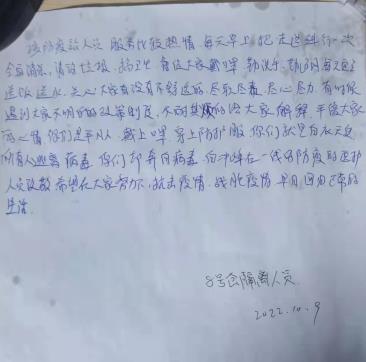 该防疫站人员 服务比较热情 每天早上把走道进行一次
全面消毒，清除垃圾，搞卫生 督促大家戴口罩 勤洗手 每天
送饭送水 关心大家有没有不舒适的 尽职尽责 尽心尽力 有时候
遇到大家不明白的政策制度，不耐其烦的给大家解释 平稳大家
的心情 你们是平凡人 戴上口罩 穿上防护服 你们就是白衣天使
所有人逃离病毒 你们却奔向病毒 向冲锋在一线的防疫的医护
人员致敬 希望在大家努力 抗击疫情 战胜疫情 早日回归正常的
生活.
8号 隔离人员
2022.10.9